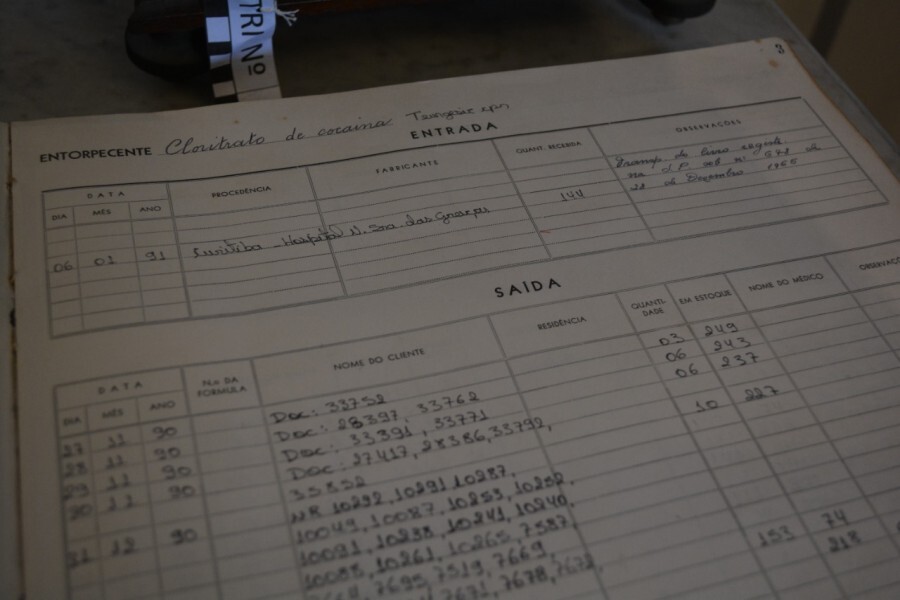 TRI Nº
3
ENTORPECENTE Cloritrato de cocaina
ENTRADA
DATA PROCEDÊNCIA FABRICANTE QUANT. RECEBIDA OBSERVAÇÕES
DIA MÊS ANO
Transf. do livro
de Dezembro
144
06 01 91 Curitiba - Hospital N. Sra. das Graças
SAÍDA
DATA N.o DA FÓRMULA NOME DO CLIENTE RESIDÊNCIA QUANTI-DADE EM ESTOQUE NOME DO MÉDICO
DIA MÊS ANO
27 11 90 Doc: 33752 03 249
28 11 90 Doc: 28397, 33762 06 243
29 11 90 Doc: 33391, 33771 06 237
30 11 90 Doc: 27417, 28386, 33792,
10 227
NR 10292, 10291 10287,
31 12 90 10049, 10087, 10253, 10252,
10091, 10238, 10241, 10240
10088, 10261, 10265, 7587,
7695, 7519, 7669, 153 74
7671, 7678, 7672, 218